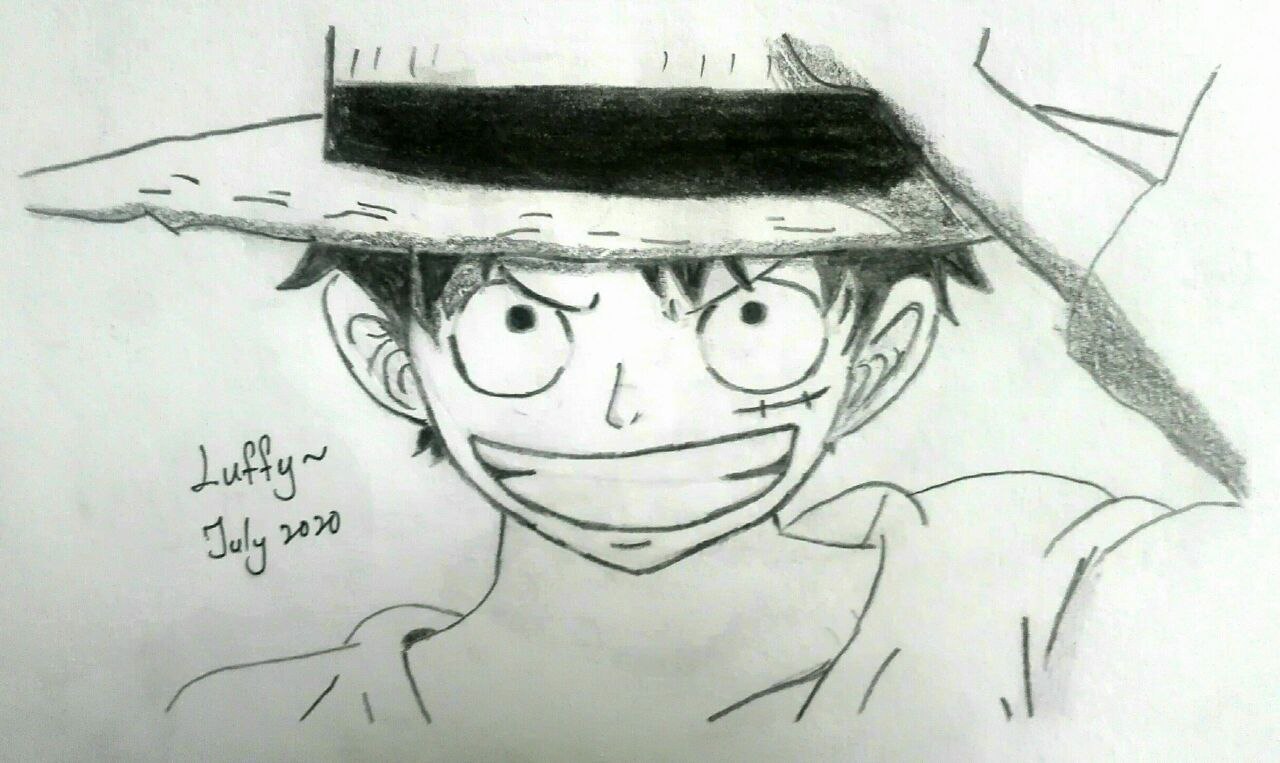 Luffy~
July 2020